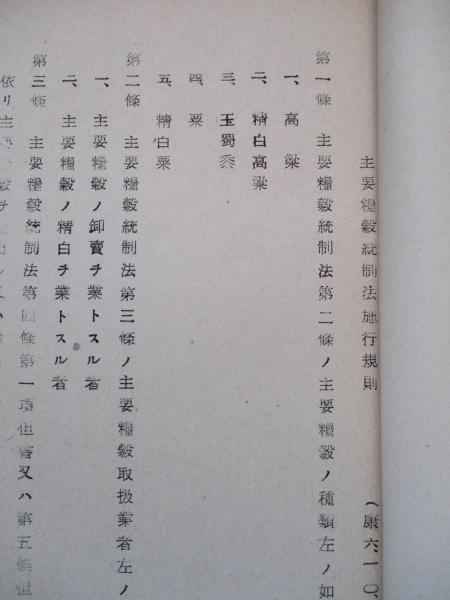 主要糧穀統制法施行規則
(康六、一〇、
第一條 主要糧穀統制法第二條ノ主要糧穀ノ種類左ノ如
一、高粱
二、精白高粱
三、玉蜀黍
四、粟
五、精白粟
第二條 主要糧穀統制法第三條ノ主要糧穀取扱業者左ノ
一、主要糧穀ノ卸賣ヲ業トスル者
二、主要糧穀ノ精白ヲ業トスル者
第三條 主要糧穀統制法第四條第一項但書又ハ第五條但
依リ主要